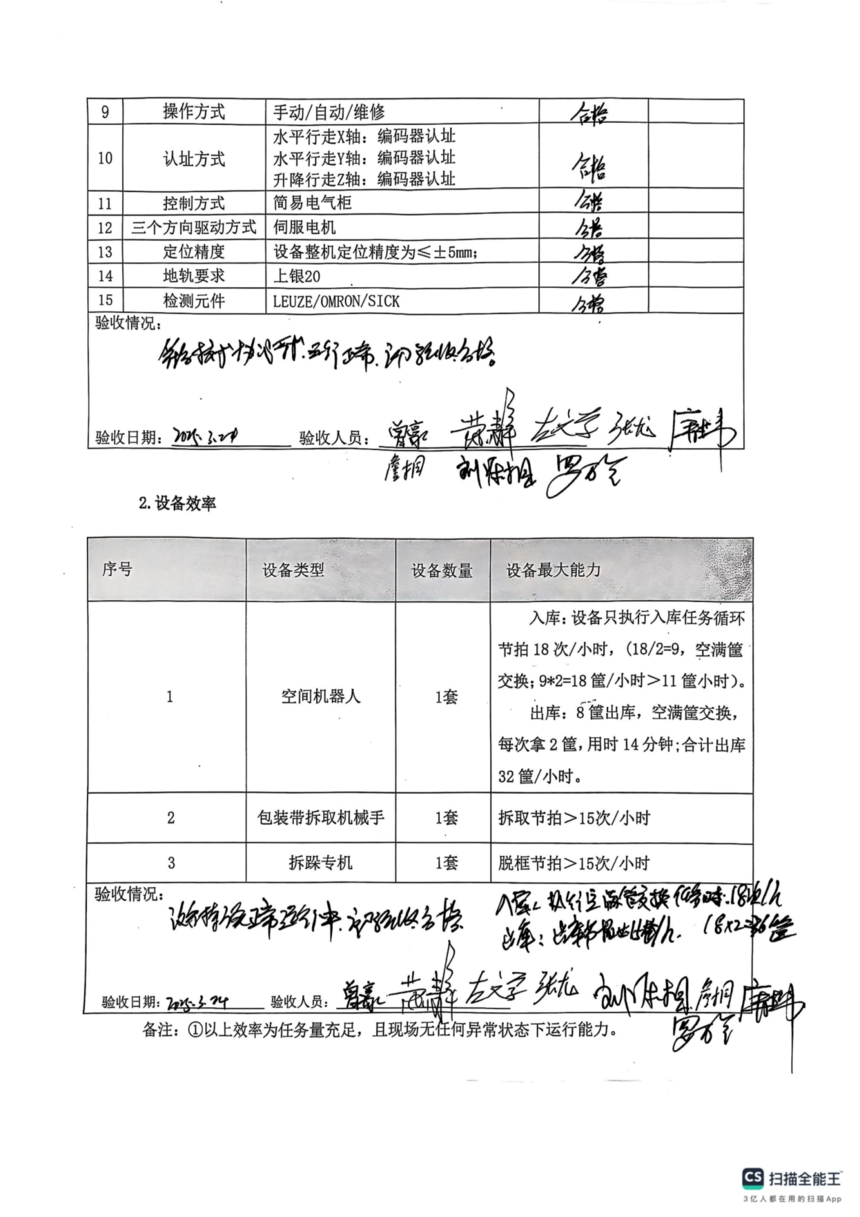 9 操作方式 手动/自动/维修 合格
10 认址方式 水平行走X轴：编码器认址
水平行走Y轴：编码器认址
升降行走Z轴：编码器认址 合格
11 控制方式 简易电气柜 合格
12 三个方向驱动方式 伺服电机 合格
13 定位精度 设备整机定位精度为≤±5mm； 合格
14 地轨要求 上银20 合格
15 检测元件 LEUZE/OMRON/SICK 合格
验收情况：
验收合格
验收日期：2025.3.24 验收人员：曾豪 左文学 张龙
2.设备效率
序号 设备类型 设备数量 设备最大能力
1 空间机器人 1套 入库：设备只执行入库任务循环
节拍18次/小时，（18/2=9，空满筐
交换；9*2=18筐/小时＞11筐小时）。
出库：8筐出库，空满筐交换，
每次拿2筐，用时14分钟；合计出库
32筐/小时。
2 包装带拆取机械手 1套 拆取节拍＞15次/小时
3 拆跺专机 1套 脱框节拍＞15次/小时
验收情况：
验收合格
入库：执行空满筐交换任务时：18次/h
出库： 18x2=36筐
验收日期：2025.3.24 验收人员：曾豪 左文学 张龙
备注：①以上效率为任务量充足，且现场无任何异常状态下运行能力。
CS 扫描全能王
3亿人都在用的扫描App